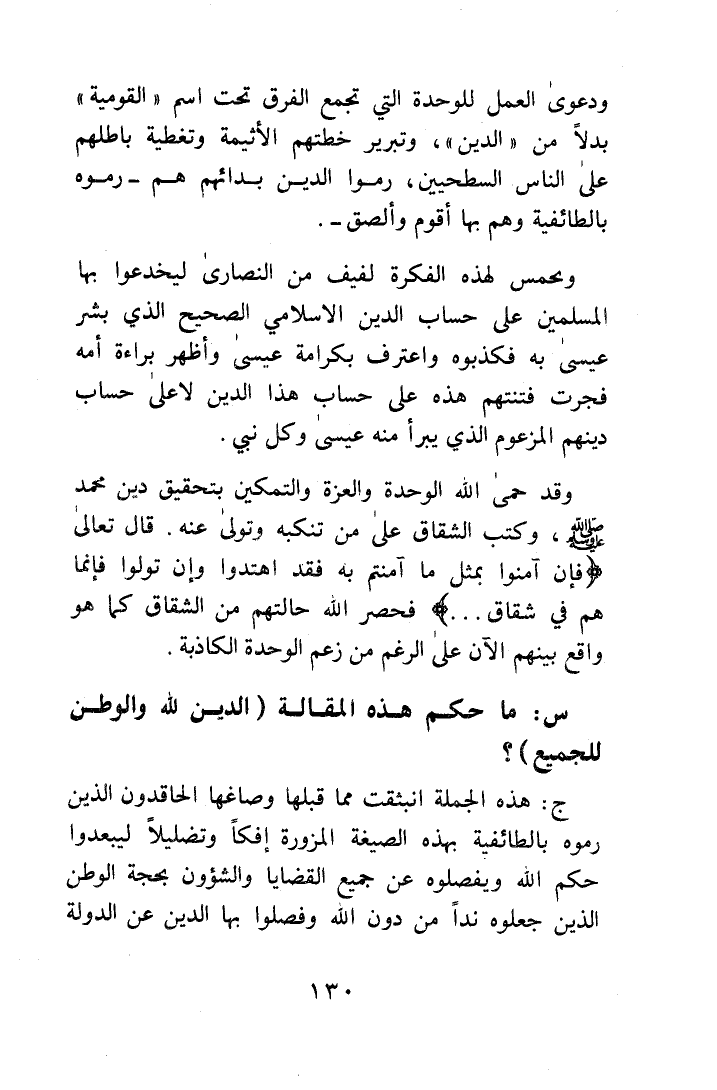 ودعوىٰ العمل للوحدة التي تجمع الفرق تحت اسم «القومية»
بدلاً من «الدين»، وتبرير خطتهم الأثيمة وتغطية باطلهم
علىٰ الناس السطحيين، رموا الدين بدائهم هم ـ رموه
بالطائفية وهم بها أقوم وألصق ـ .
وتحمس لهذه الفكرة لفيف من النصارىٰ ليخدعوا بها
المسلمين علىٰ حساب الدين الاسلامي الصحيح الذي بشر
عيسىٰ به فكذبوه واعترف بكرامة عيسىٰ وأظهر براءة أمه
فجرت فتنتهم هذه علىٰ حساب هذا الدين لاعلىٰ حساب
دينهم المزعوم الذي يبرأ منه عيسىٰ وكل نبي .
وقد حمىٰ الله الوحدة والعزة والتمكين بتحقيق دين محمد
ﷺ ، وكتب الشقاق علىٰ من تنكبه وتولىٰ عنه . قال تعالىٰ
﴿فإن آمنوا بمثل ما آمنتم به فقد اهتدوا وإن تولوا فإنما
هم في شقاق . . .﴾ فحصر الله حالتهم من الشقاق كما هو
واقع بينهم الآن علىٰ الرغم من زعم الوحدة الكاذبة .
س : ما حكم هذه المقالة ( الدين لله والوطن
للجميع ) ؟
ج : هذه الجملة انبثقت مما قبلها وصاغها الحاقدون الذين
رموه بالطائفية بهذه الصيغة المزورة إفكاً وتضليلاً ليبعدوا
حكم الله ويفصلوه عن جميع القضايا والشؤون بحجة الوطن
الذين جعلوه نداً من دون الله وفصلوا بها الدين عن الدولة
١٣٠